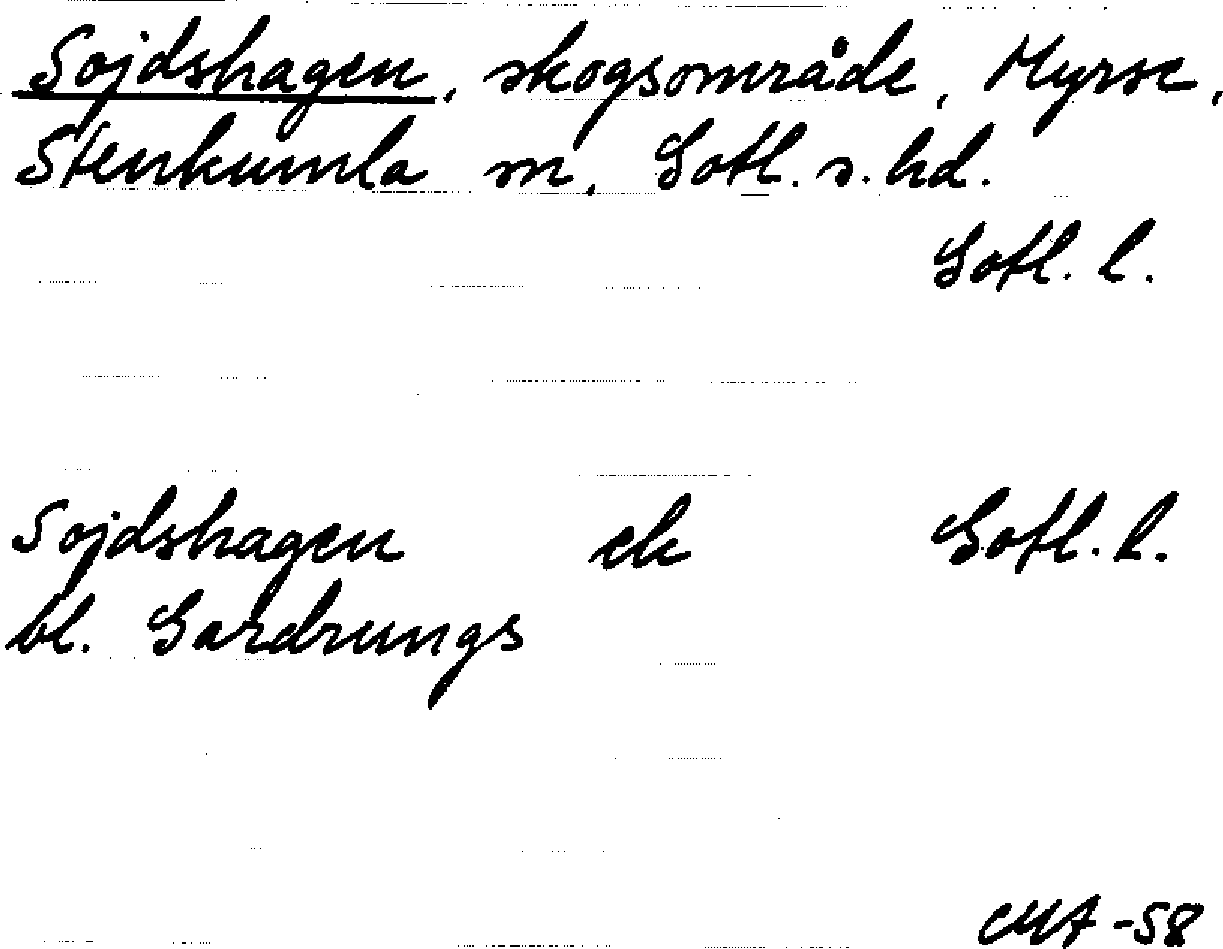 Sojdshagen, skogsområde, Myrse,
Stenkumla sn, Gotl. s. hd.
Gotl. l.
Sojdshagen ek Gotl. l.
bl. Gardrungs
CMA -58